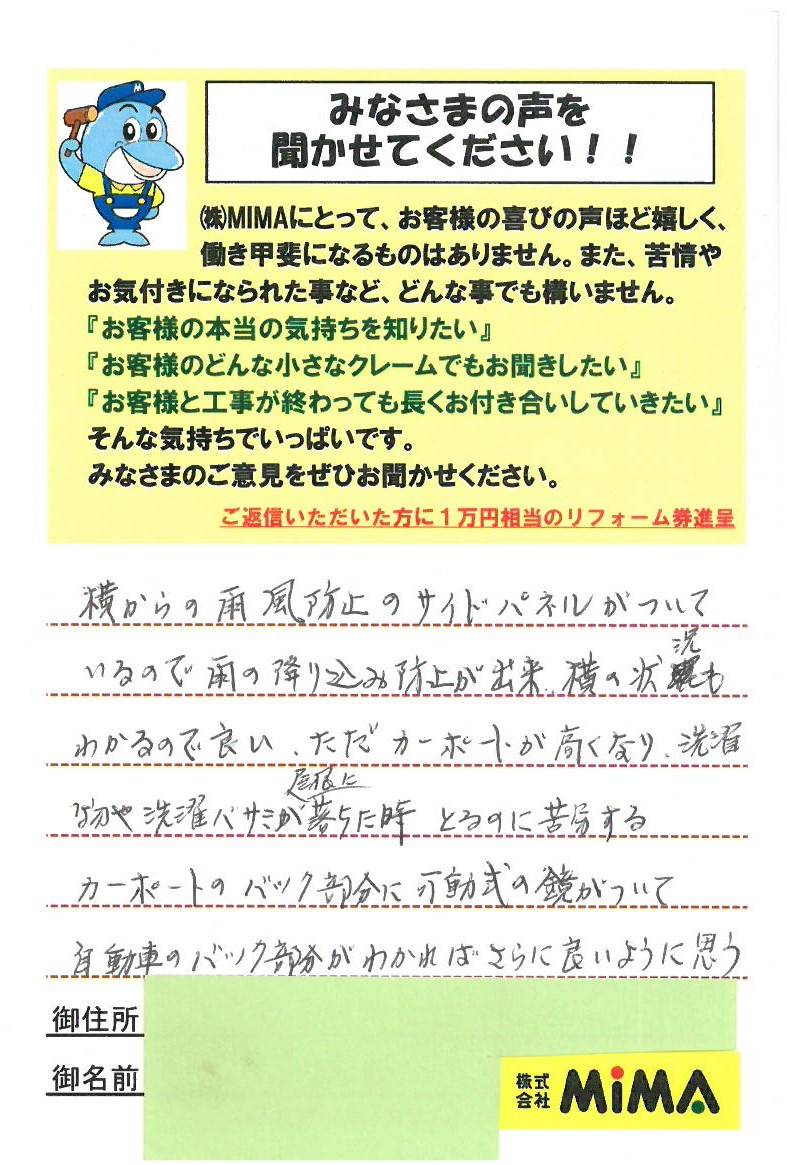 みなさまの声を
聞かせてください！！
㈱MIMAにとって、お客様の喜びの声ほど嬉しく、
働き甲斐になるものはありません。また、苦情や
お気付きになられた事など、どんな事でも構いません。
『お客様の本当の気持ちを知りたい』
『お客様のどんな小さなクレームでもお聞きしたい』
『お客様と工事が終わっても長くお付き合いしていきたい』
そんな気持ちでいっぱいです。
みなさまのご意見をぜひお聞かせください。
ご返信いただいた方に１万円相当のリフォーム券進呈
横からの雨風防止のサイドパネルがついて
いるので雨の降り込み防止が出来、横の状況も
わかるので良い、ただカーポートが高くなり、洗濯
物や洗濯バサミが屋根に落ちた時とるのに苦労する
カーポートのバック部分に可動式の鏡がついて
自動車のバック部分がわかればさらに良いように思う
御住所
御名前
株式会社 MiMA